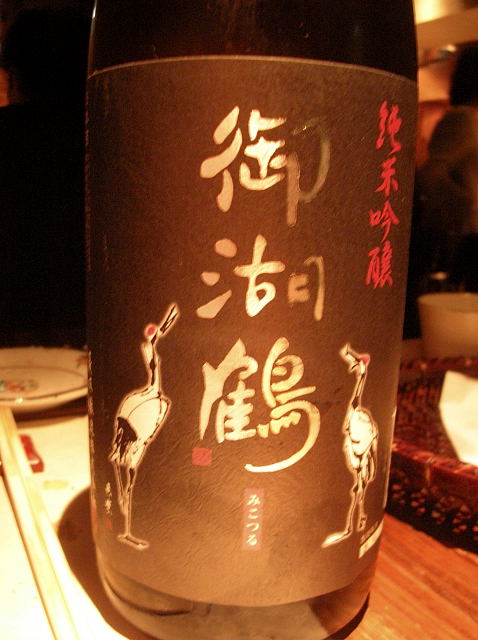 純米吟醸
御湖鶴
みこつる